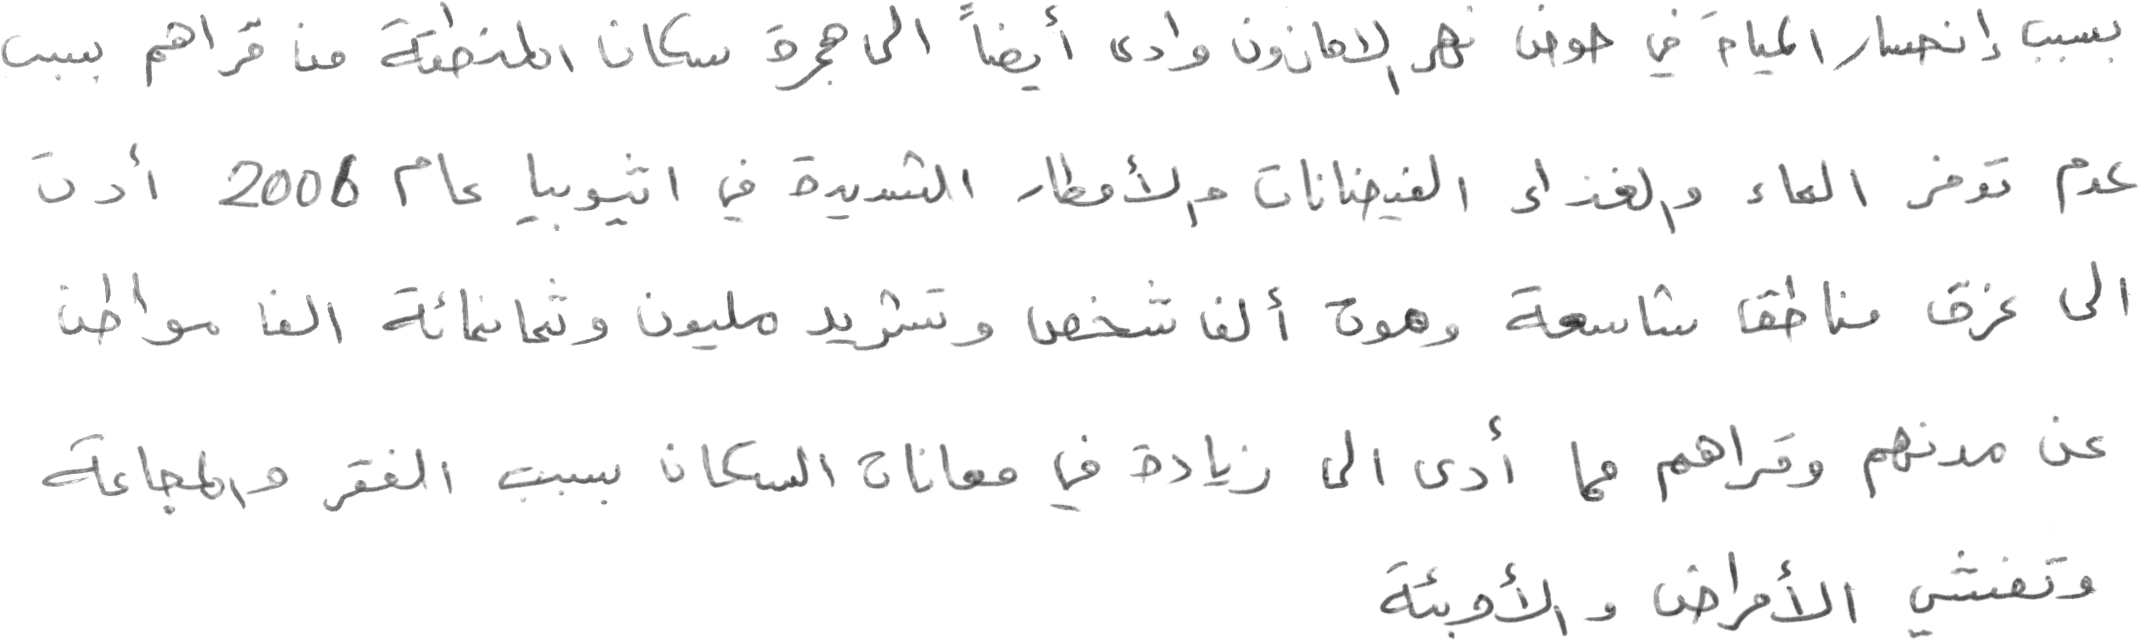 بسبب إنحسار المياه في حوض نهر الامازون وادى أيضاً الى هجرة سكان المنطقة من قراهم بسبب
عدم توفر الماء والغذاء الفيضانات والأمطار الشديدة في اثيوبيا عام 2006 أدت
الى غرق مناطق شاسعة وموت ألف شخص وتشريد مليون وثمانمائة الف مواطن
عن مدنهم وقراهم مما أدى الى زيادة في معاناة السكان بسبب الفقر والمجاعة
وتفشي الأمراض والأوبئة